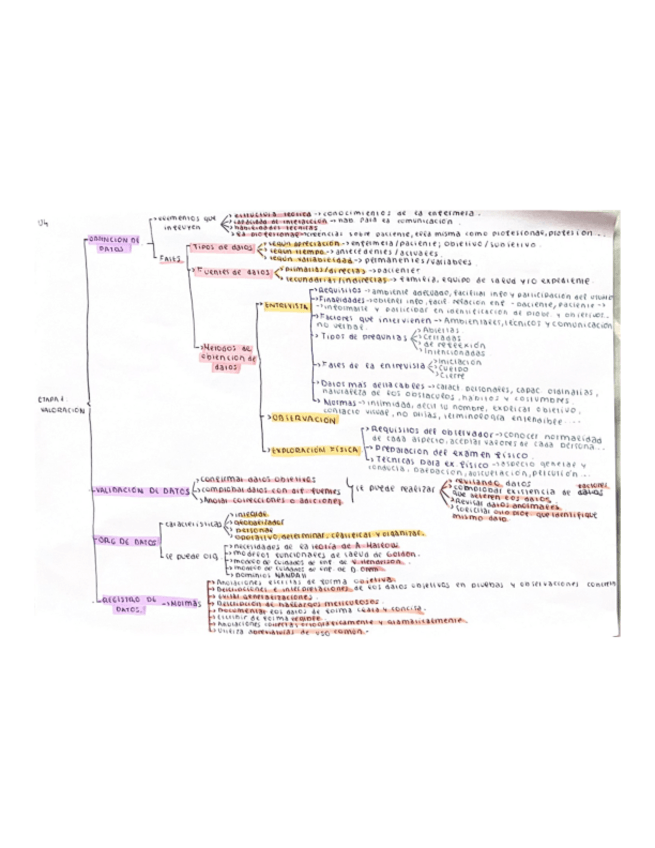 U4
ETAPA 1:
VALORACIÓN
OBTENCIÓN DE
DATOS
elementos que
influyen
estructura teórica → conocimientos de la enfermera.
capacidad de interacción → hab. para la comunicación
habilidades técnicas
creencias sobre paciente, ella misma como profesional, profesión...
FASES
Tipos de datos
según apreciación → enfermera/paciente; objetivo/subjetivo.
según tiempo → antecedentes/actuales.
según variabilidad → permanentes/variables.
Fuentes de datos
primarias/directas → paciente
secundarias/indirectas → familia, equipo de salud y/o expediente.
Métodos de
obtención de
datos
ENTREVISTA
Requisitos → ambiente adecuado, facilitar info y participación del usuario
Finalidades → obtener info, facil. relación enf - paciente, paciente →
informarle y participar en identificación de probl. y objetivos.
Factores que intervienen → Ambientales, técnicos y comunicación
no verbal.
Tipos de preguntas
Abiertas
Cerradas
de reflexión
Intencionadas
Fases de la entrevista
Iniciación
Cuerpo
Cierre
Datos más destacables → caract. personales, capac. ordinarias,
naturaleza de los obstáculos, hábitos y costumbres
Normas → intimidad, decir su nombre, explicar objetivo,
contacto visual, no prisas, terminología entendible...
OBSERVACIÓN
EXPLORACIÓN FÍSICA
Requisitos del observador → conocer normalidad
de cada aspecto, aceptar valores de cada persona...
Preparación del examen físico.
Técnicas para ex. físico → aspecto general y
conducta, palpación, auscultación, percusión...
VALIDACIÓN DE DATOS
confirmar datos objetivos
comparar datos con dif. fuentes
Anotar correcciones o adiciones
se puede realizar
revisando datos
comprobar existencia de factores
que alteren los datos
Revisar datos anormales
solicitar otro prof. que identifique
mismo dato
ORG DE DATOS
características
personal
operativo, determinar, clasificar y organizar.
se puede org.
Necesidades de la teoría de A. Maslow
modelos funcionales de salud de Gordon.
modelo de cuidados de enf. de V. Henderson.
modelo de cuidados de enf. de D. Orem
Dominios NANDA II
REGISTRO DE
DATOS
→ Normas
Anotaciones escritas de forma objetiva.
Descripciones e interpretaciones de los datos objetivos en pruebas y observaciones concretas
Evitar generalizaciones.
Descripción de hallazgos meticulosos
Documentar los datos de forma clara y concisa.
Escribir de forma legible.
Anotaciones correctas ortográficamente y gramaticalmente.
Utiliza abreviaturas de uso común.